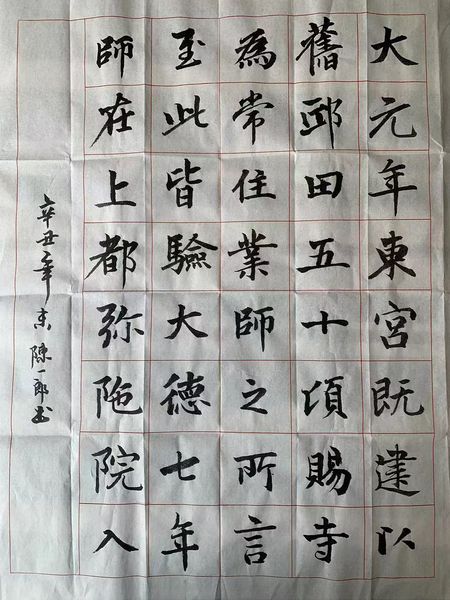 大元年東宮既建以
舊邸田五十頃賜寺
為常住業師之所言
至此皆驗大德七年
師在上都弥陁院入
辛丑年 陳一郎书